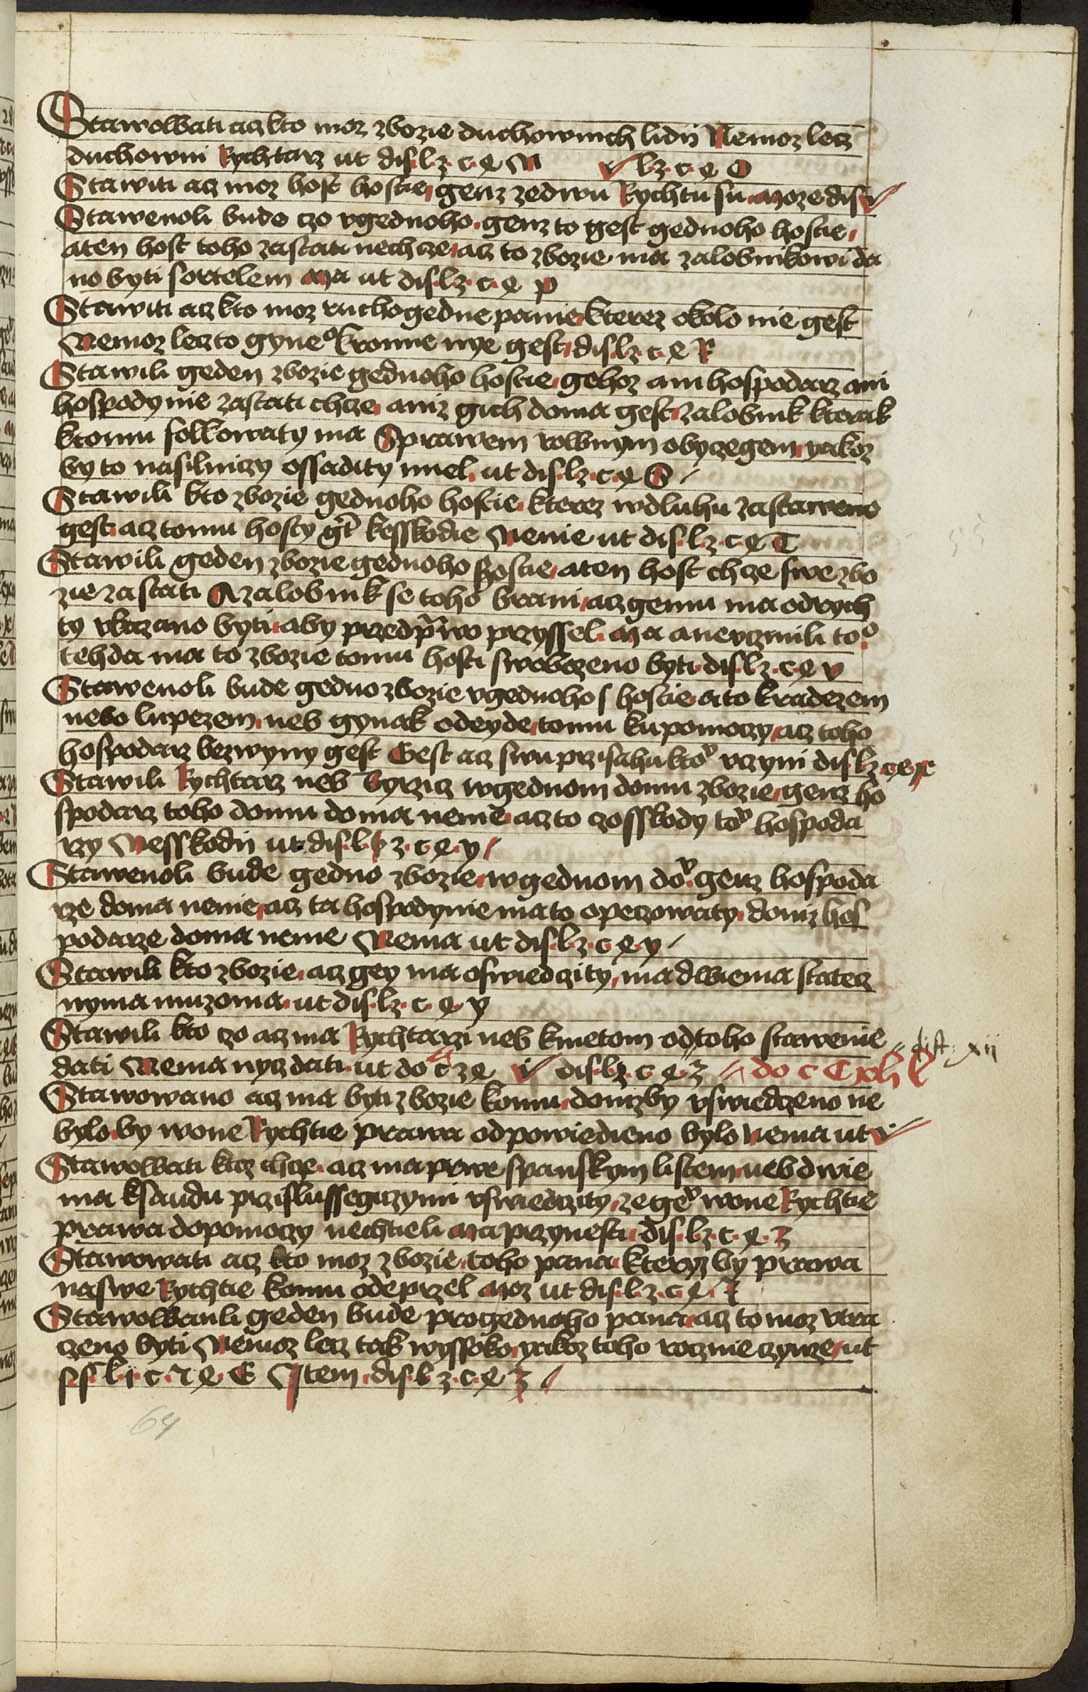 Stawowati acz kto moz zbozie duchownich lidij Nemoz lecz
duchowni Rychtarz ut dis.l z. c. e N v l z. c. e O
Stawiti acz moz host hostie, genz zedwu Rychtu su. Moze dis v
Stawenoli bude czo vgednoho. genz to gest gednoho hostie,
aten host toho zastati nechcze, acz to zbozie ma zalobnikowi da
no byti sortelem Ma ut dis.l z. c. e p
Stawiti acz kto moz ruchogedne panie, kterez okolo nie gest
Nemoz lecz to gyneo kromie nye gest, dis.l z. c. e R
Stawili geden zbozie gednoho hostie, gehoz ani hospodarz ani
hospodynie zastati chcze, aniz gich doma gest, zalobnik kterak
ktomu followaty ma Sprawem rowbnym obyczegem, yakoz
by to nasilniczy ossadity miel. ut dis.l z. c. e S
Stawili kto zbozie gednoho hostie, kterez wdluhu zastaweno
gest. acz tomu hosty gt kesskodie Nenie ut dis.l z. c. e T
Stawili geden zbozie gednoho hostie, aten host chcze swe zbo
zie zastati A zalobnik se toho brani, acz gemu ma odrych
ty vkazano byti, aby przed prwo przyssel. Ma a nevczinili too
tehda ma to zbozie tomu hosti swobozeno byti. dis.l z. c. e v
Stawenoli bude gedno zbozie vgednoho s hostie, a to kradezem
nebo lupezem, neb gynak odeyde, tomu kupomoczy, acz toho
hospodarz bezwyny gest Gest acz swu przisahu kto vczyni dis.l z. c. e x
Stawili Rychtarz neb Byrzicz wgednom domu zbozie, genz ho
spodarz toho domu doma neme, acz to czosskody to hospoda
rzy Nesskodij ut. dis.l. z. c. e. y
Stawenoli bude gedno zbozie, wgednom do. genz hospoda
rze doma nenie, acz ta hospodynie ma to opeczowaty, doniz hos
podarze doma neme Nema ut dis.l z. c. e. y
Stawili kto zbozie. acz gey ma oswiedczity, ma dwiema statecz
nyma muzoma. ut dis.l z. c. e y
Stawili kto czo acz ma Rychtarzi neb kmetom odtoho stawenie
dati Nema nycz dati. ut do c z e v dis.l z. c. e z do c C xlij e dist. xij
Stawowano acz ma byti zbozie komu, donizby vswiedczeno ne
bylo, by wone Rychtie prawa odpowiedieno bylo Nema ut v
Stawowati ktoz chcze. acz ma prwe spanskym listem, neb dwie
ma ksaudu przislussegiczymi vswiedczity, ze geo wone Rychtie
prawa dopomoczy nechtieli Ma przynesti. dis.l z. c. e. z
Stawowati acz kto moz zbozie, toho pana, kteryz by prawa
naswe Rychtie komu odeprzel Moz ut dis.l z. c. e. z
Stawowanli geden bude progednoho pana, acz to moz vtra
czeno byti Nemoz lecz tak wyssoko, yakoz toho roczenie czynze, ut
p s. l. i. c. 2 e. G Item. dis.l z. c. e z
64